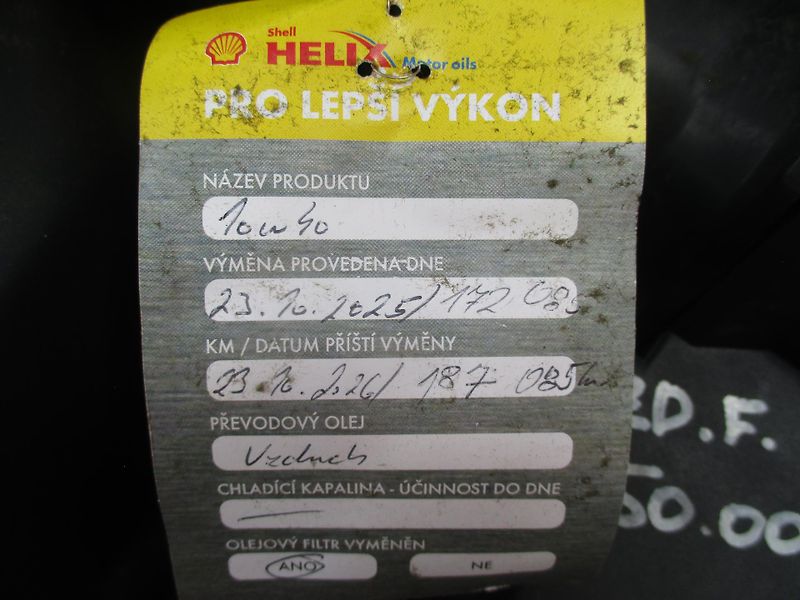 Shell
HELIX
Motor oils
PRO LEPŠÍ VÝKON
NÁZEV PRODUKTU
10w40
VÝMĚNA PROVEDENA DNE
23.10.2025/172 085
KM / DATUM PŘÍŠTÍ VÝMĚNY
23.10.2026/ 187 085km
PŘEVODOVÝ OLEJ
Vzduch
CHLADÍCÍ KAPALINA - ÚČINNOST DO DNE
OLEJOVÝ FILTR VYMĚNĚN
ANO NE
D.F.
00.00